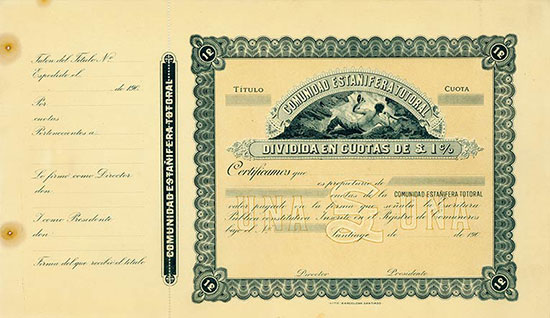 Talon del Titulo No
Expedido el
de 190
Por
cuotas
Pertenecientes a
Lo firmo como Director
don
I como Presidente
don
Firma del que recibió el titulo
COMUNIDAD ESTAÑIFERA TOTORAL
1ª 1ª
TÍTULO CUOTA
COMUNIDAD ESTAÑIFERA TOTORAL
DIVIDIDA EN CUOTAS DE 1%
Certificamos que
es propietario de
cuotas de la COMUNIDAD ESTAÑIFERA TOTORAL
cada pagada en la forma que señala la Escritura
Publica constitutiva Inscrita en el Rejistro de Comuneros
bajo el No
UNA UNA
Santiago de de 190
Director Presidente
1ª 1ª
BARCELONA-SANTIAGO